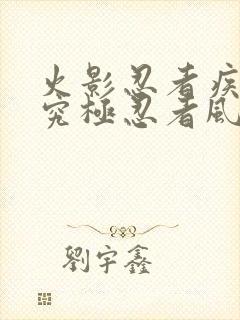 火影忍者疾
究極忍者風
劉宇鑫